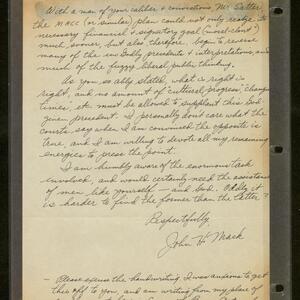 With a man of your caliber & convictions Mr. Salter
the MACC (or similar) plan could not only realize its
necessary financial & signatory goal (most late?)
much sooner, but also therefore, begin to reverse
many of the ungodly presidents & interpretations, and
much of the fuzzy liberal public thinking.
As you so ably stated, what is right is
right, and no amount of cultural progress, change,
times, etc. must be allowed to supplant this God-
given president. I personally don't care what the
courts say when I am convinced the opposite is
true, and I am willing to devote all my remaining
energies to press the point.
I am humbly aware of the enormous task
involved, and would certainly need the assistance
of men like yourself — and God. Oddly it
is harder to find the former than the latter?
Respectfully,
John H. Mack
- Please excuse the handwriting, I was anxious to get
this off to you, and am writing from my place of